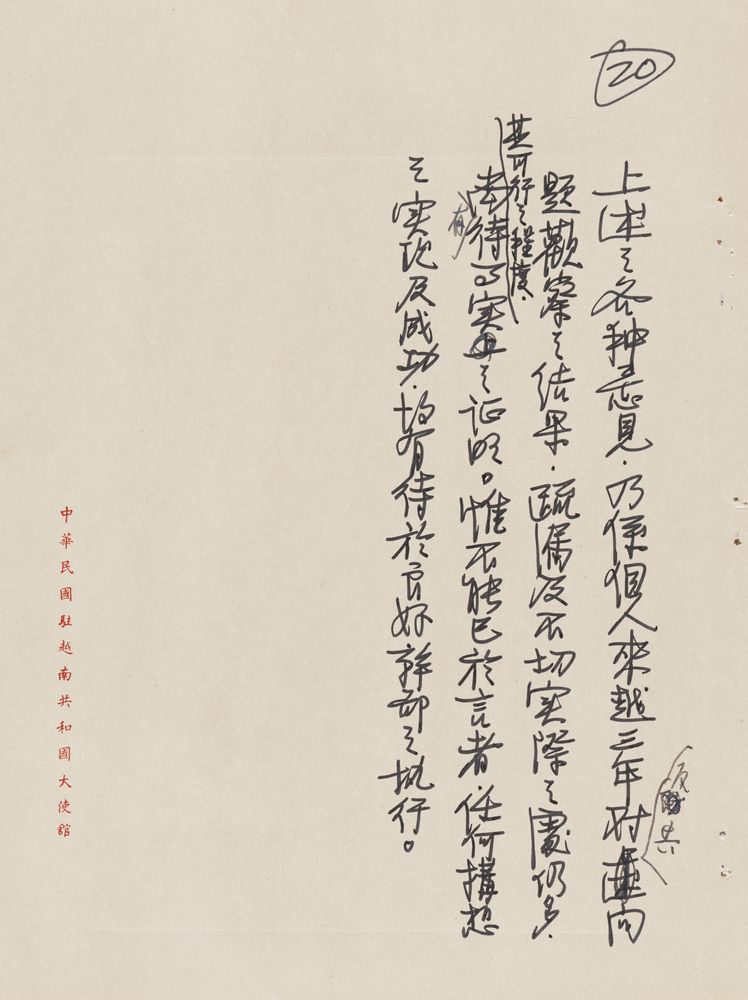 20
上述之各种意見．乃係個人來越三年对
反共
问
題觀察之结果．疏漏及不切实際之處仍多．
其可行之程度．
尚待
有
事实之证明。惟不能已於言者．任何構想
之实现及成功．均有待於良好幹部之执行。
中華民國駐越南共和國大使館